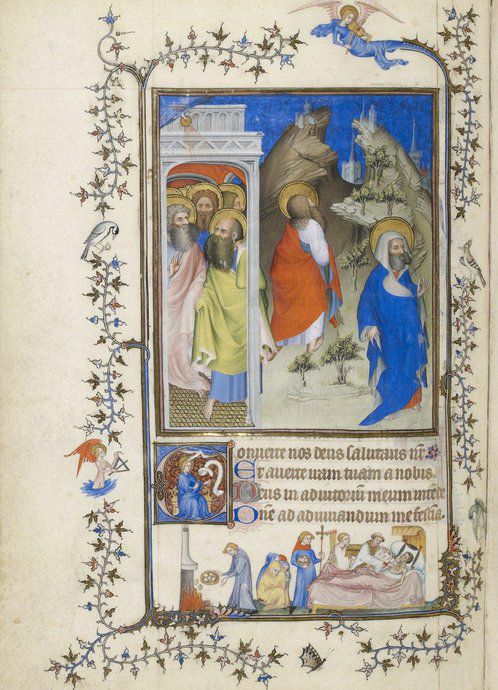 Conuerte nos deus salutaris nr̄
Et auerte iram tuam a nobis.
Deus in adiutorium meum intende
Dñe ad adiuuandum me festina.